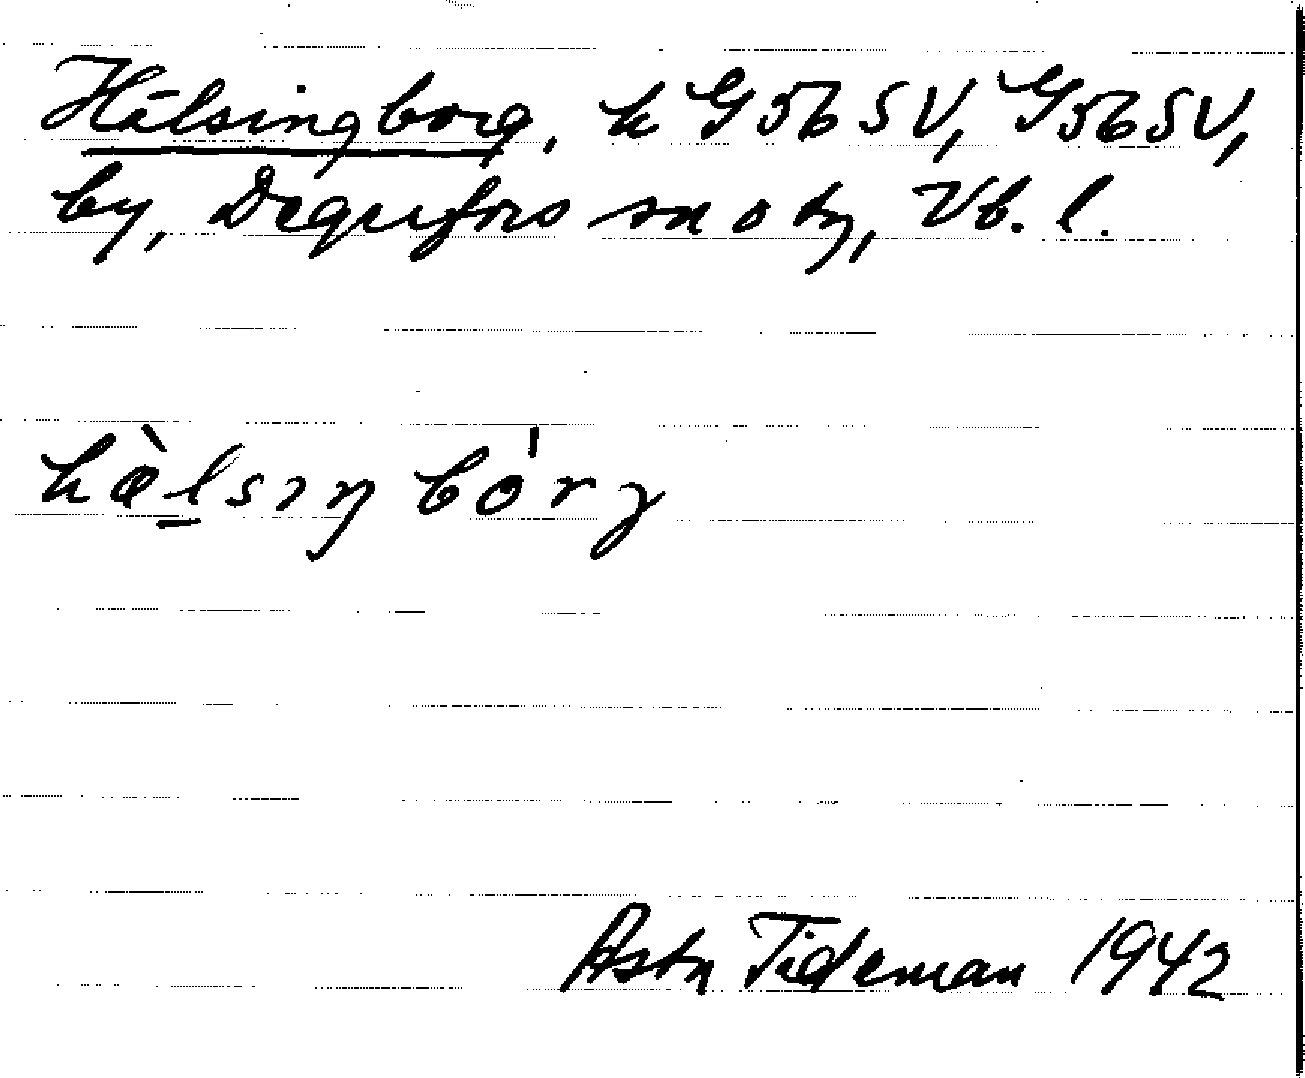 Hälsingborg, k G56SV, G56SV,
by, Degerfors sn o tg, Vb. l.
hæ̀lsıŋ bórg
Astn Tideman 1942